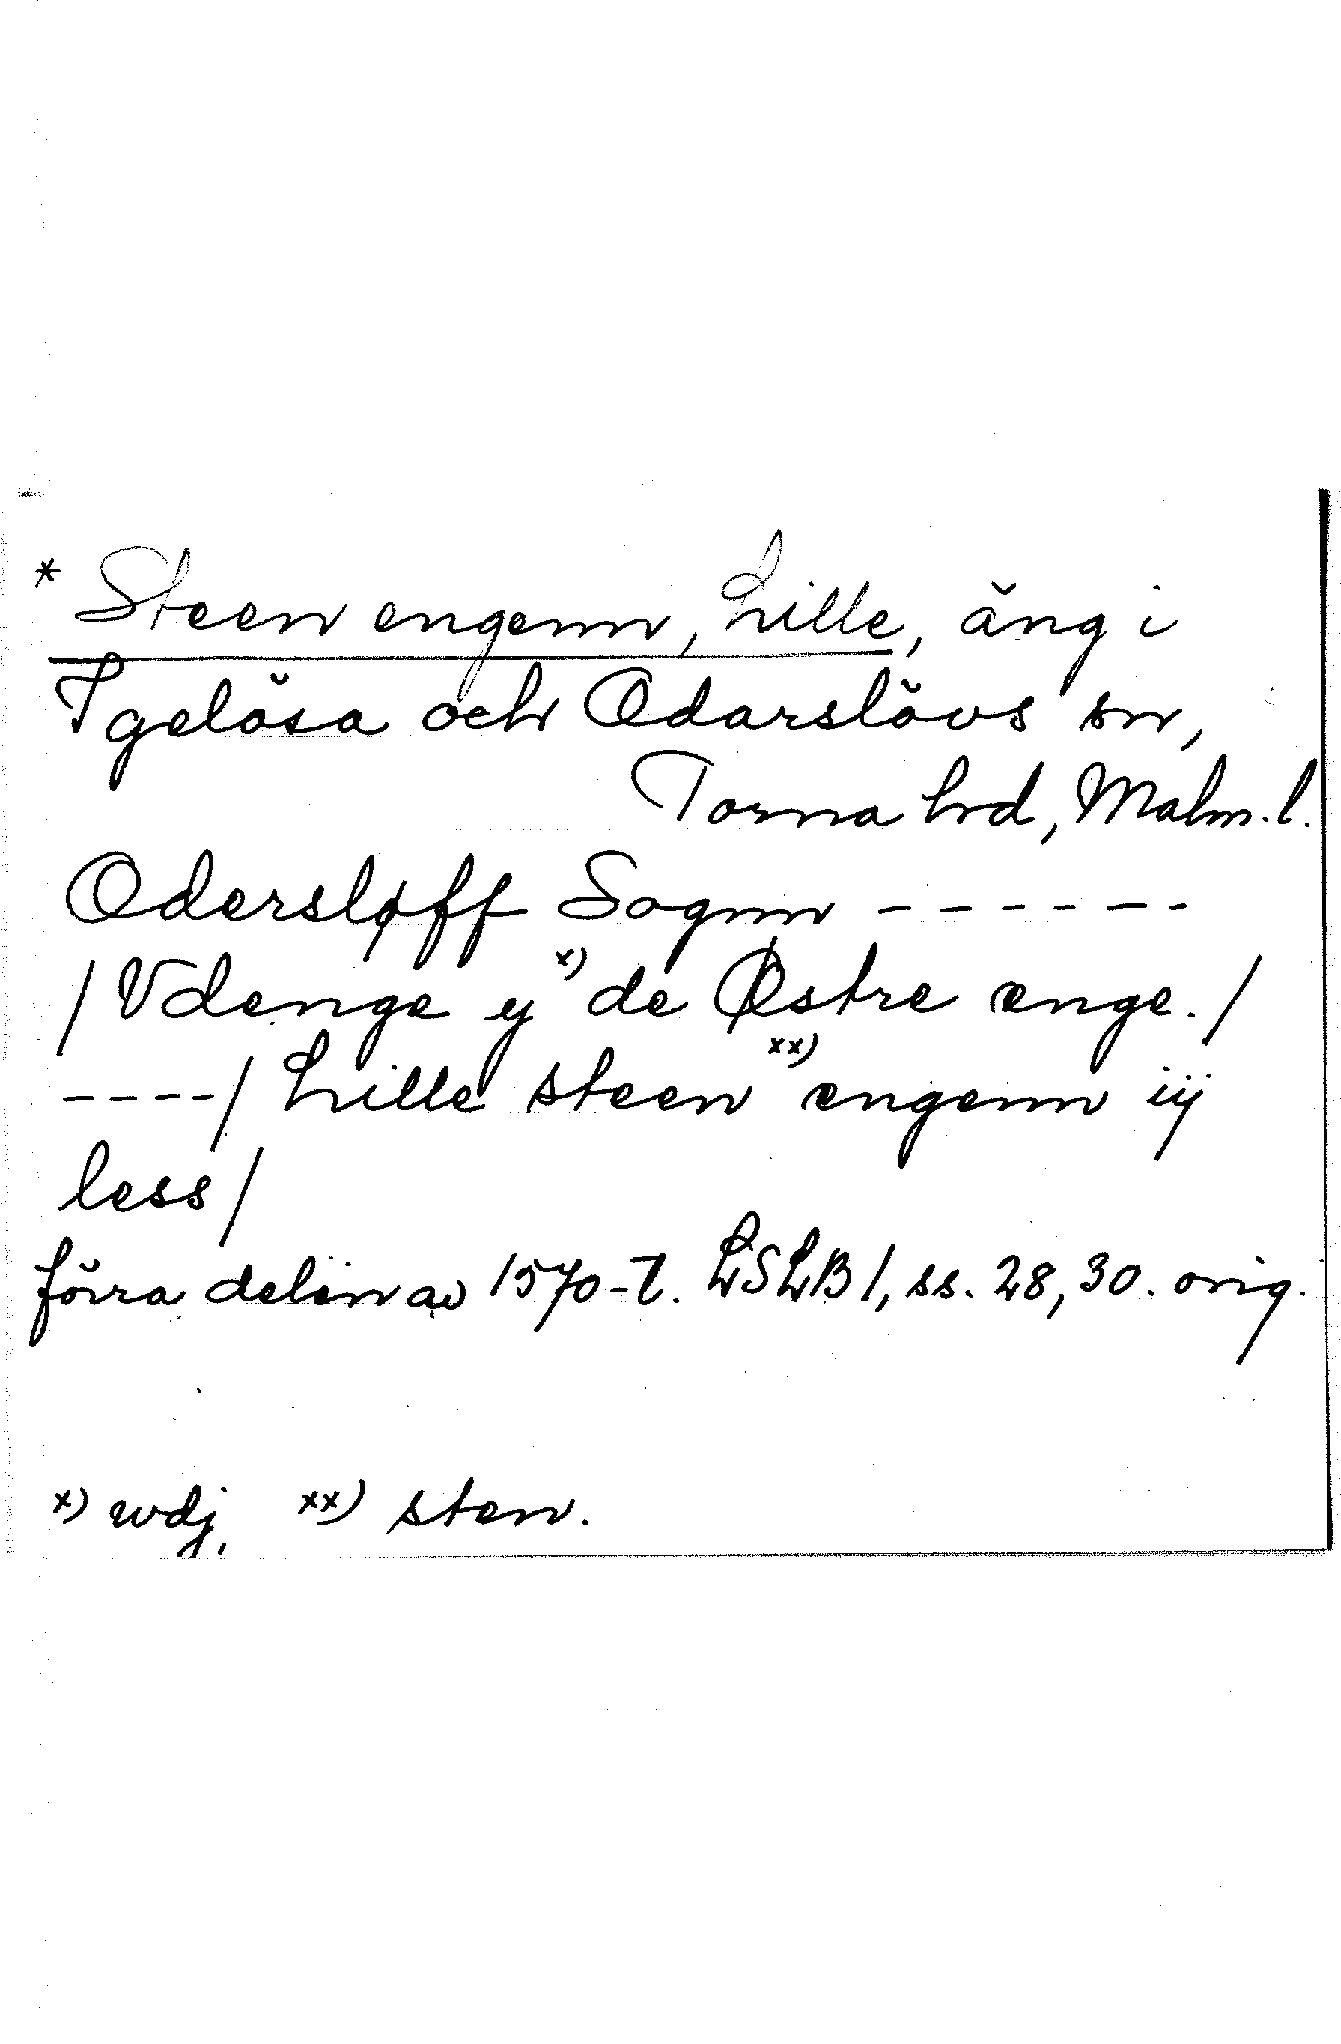 * Steen engenn, Lille, äng i
Igelösa och Odarslövs sn,
Torna hrd, Malm. l.
Odersløff Sognn ------
/ Vdenge y x) de Østre enge. /
----/ Lille steen xx) engenn iij
less /
förra delen av 1570-t. LSLB 1, ss. 28, 30. orig.
x) wdj, xx) sten.